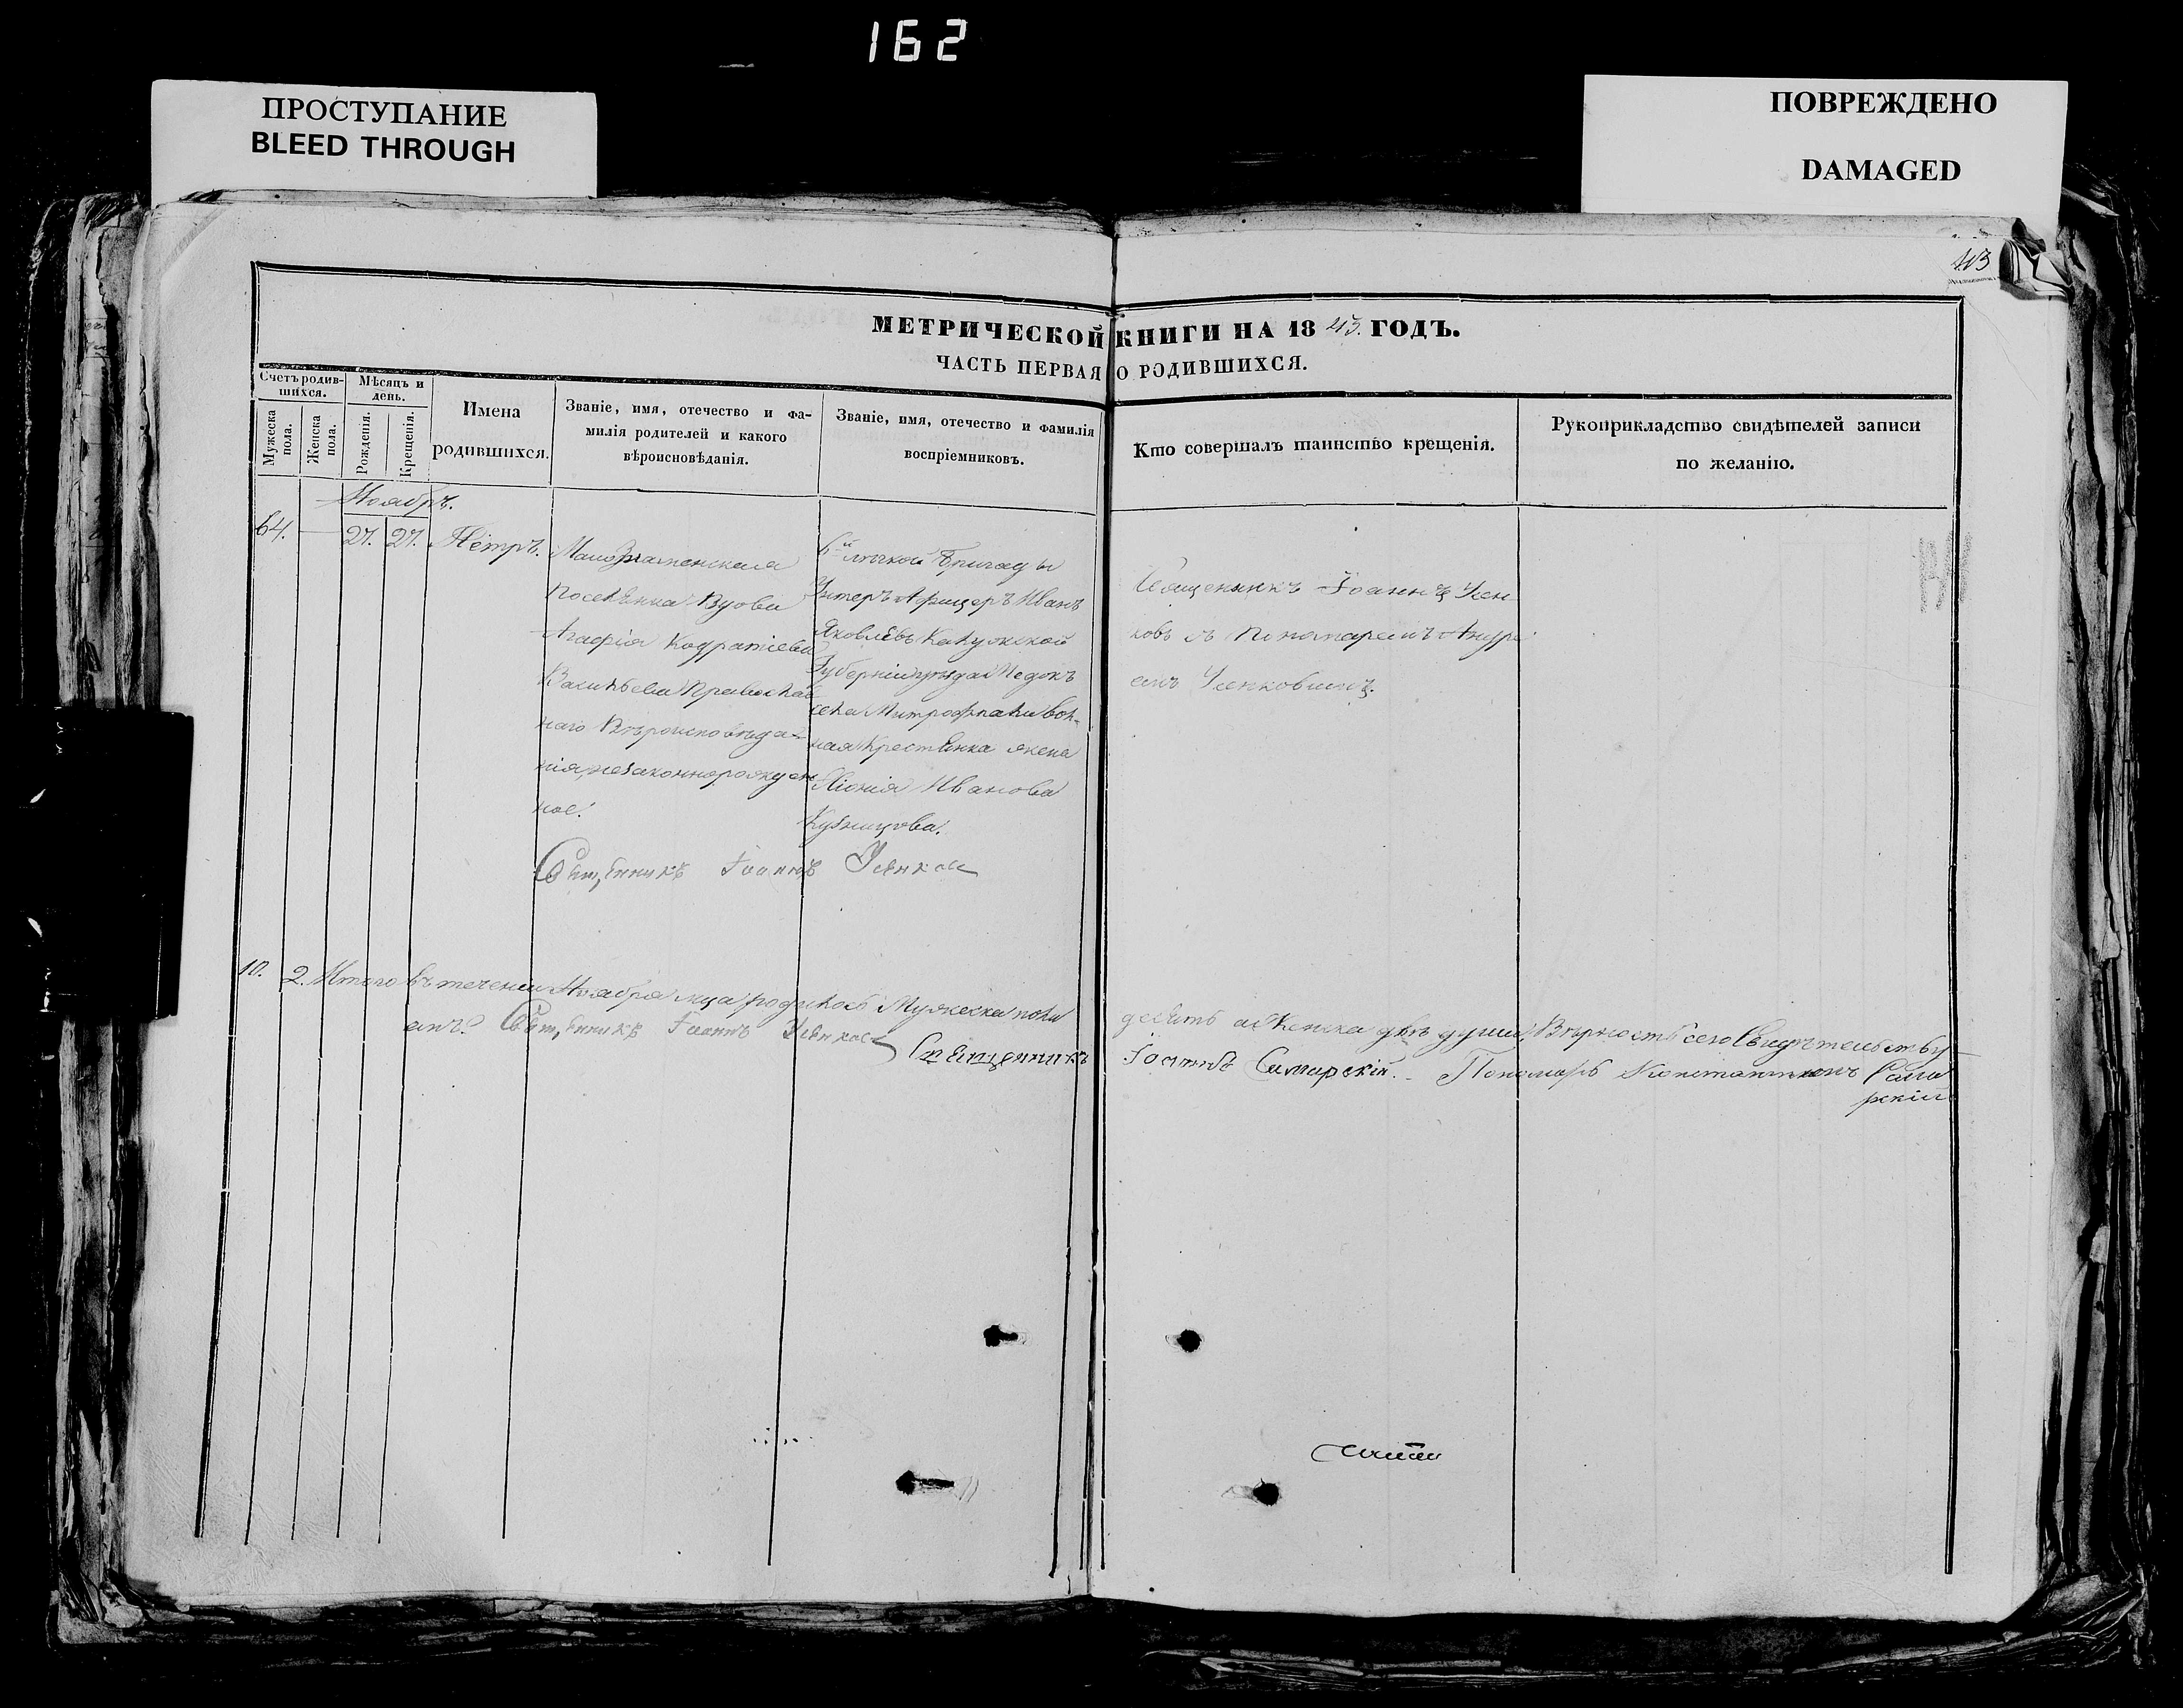 162
ПРОСТУПАНИЕ
BLEED THROUGH
ПОВРЕЖДЕНО
DAMAGED
МЕТРИЧЕСКОЙ КНИГИ НА 1843. ГОДЪ.
ЧАСТЬ ПЕРВАЯ О РОДИВШИХСЯ.
Счетъ родив-
шихся.
Мужеска
пола.
Женска
пола.
Мѣсяцъ и
день.
Рожденія.
Крещенія.
Имена
родившихся.
Званіе, имя, отечество и фа-
милія родителей и какого
вѣроисновѣданія.
Званіе, имя, отечество и фамилія
воспріемниковъ.
Кто совершалъ таинство крещенія.
Рукоприкладство свидѣтелей записи
по желанію.
Ноябрь.
64. 27. 27. Петръ.
Посел
Вдова
Агафія Кодратіева
Васильева Православ
наго Вѣроисповѣда-
нія, незаконнорожден
ное.
6й Бригады
Унтеръ Афицеръ Иванъ
Яковлевъ Калужской
Губерніи уѣзда
села воль-
ная крестьянка жена
Иванова
Кузнецова.
Священникъ Іоаннъ Усен
ковъ съ Пономаремъ Андре
емъ Усенковимъ.
Священникъ Іоаннъ Усенков
10. 2. Итого въ теченіи Ноября мца родилось Мужеска пола десять а Женска двѣ души, Вѣрность сего Свидѣтельству
емъ: Священникъ Іоаннъ Усенков
Священникъ Іоаннъ Самарскій. Пономарь Константинъ Сама
рскій